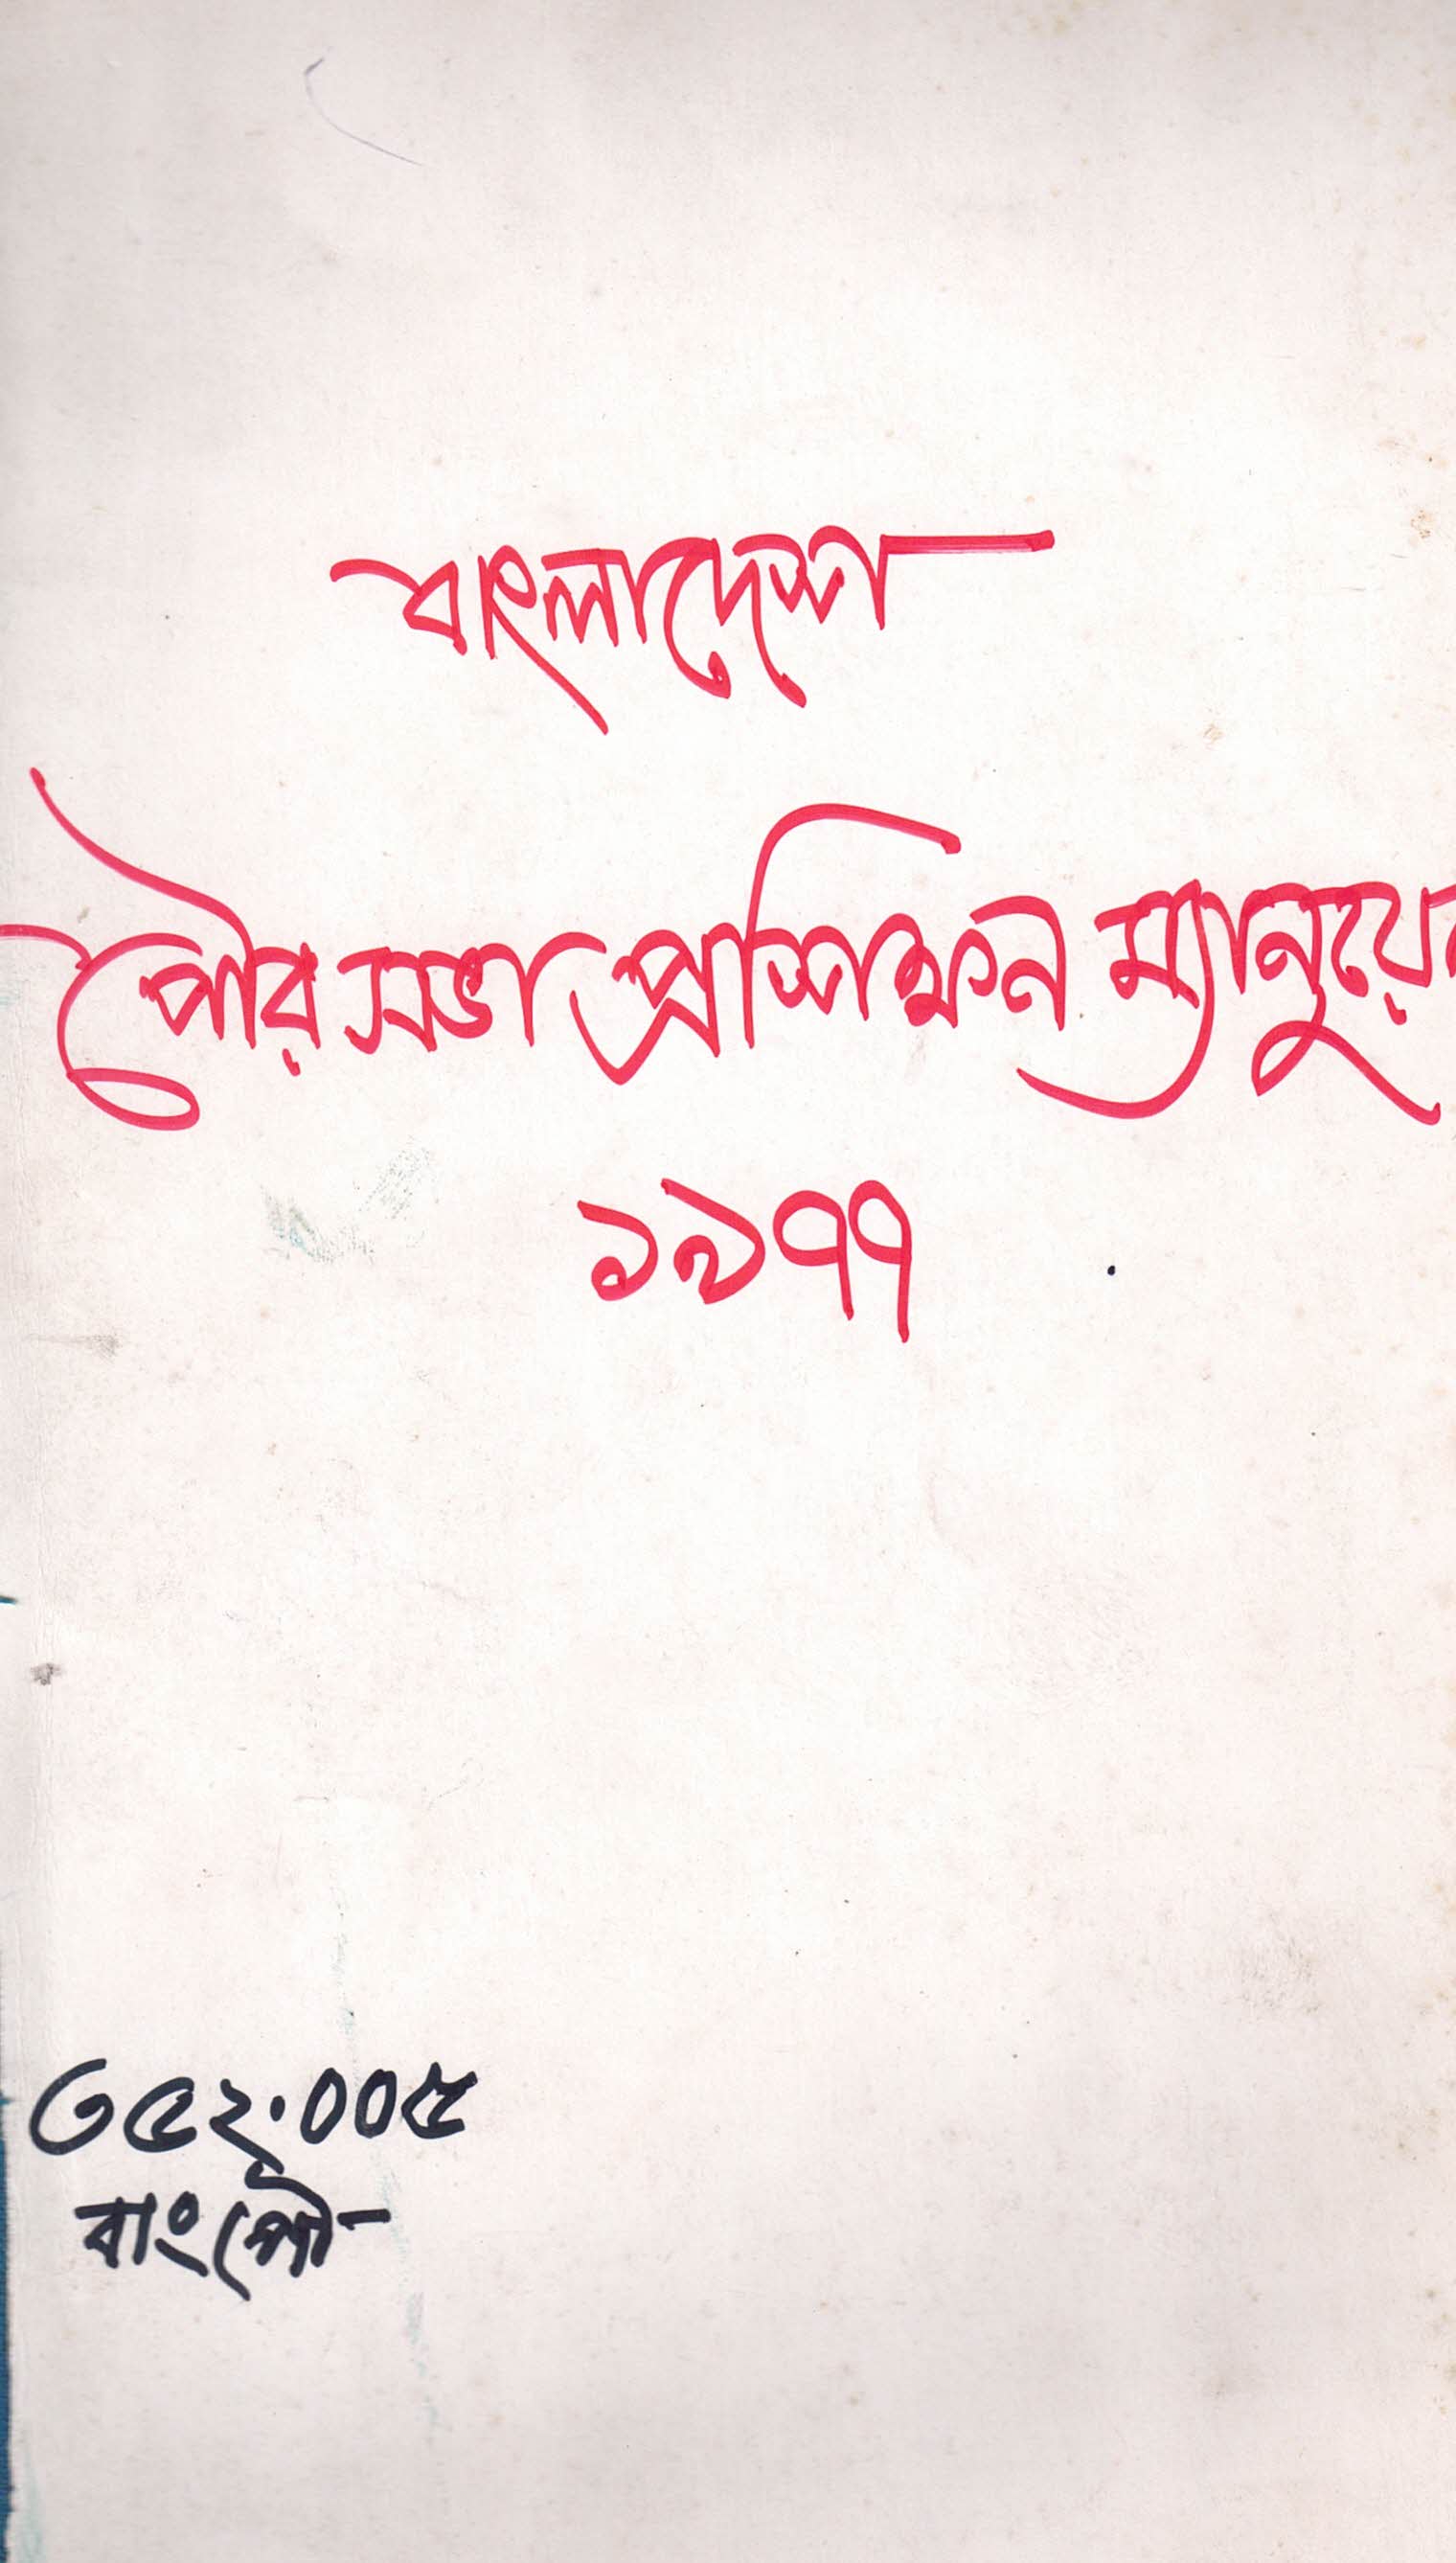 বাংলাদেশ
পৌর সভা প্রশিক্ষন ম্যানুয়েল
১৯৭৭
৩৫২.০০৫
বাংপৌ